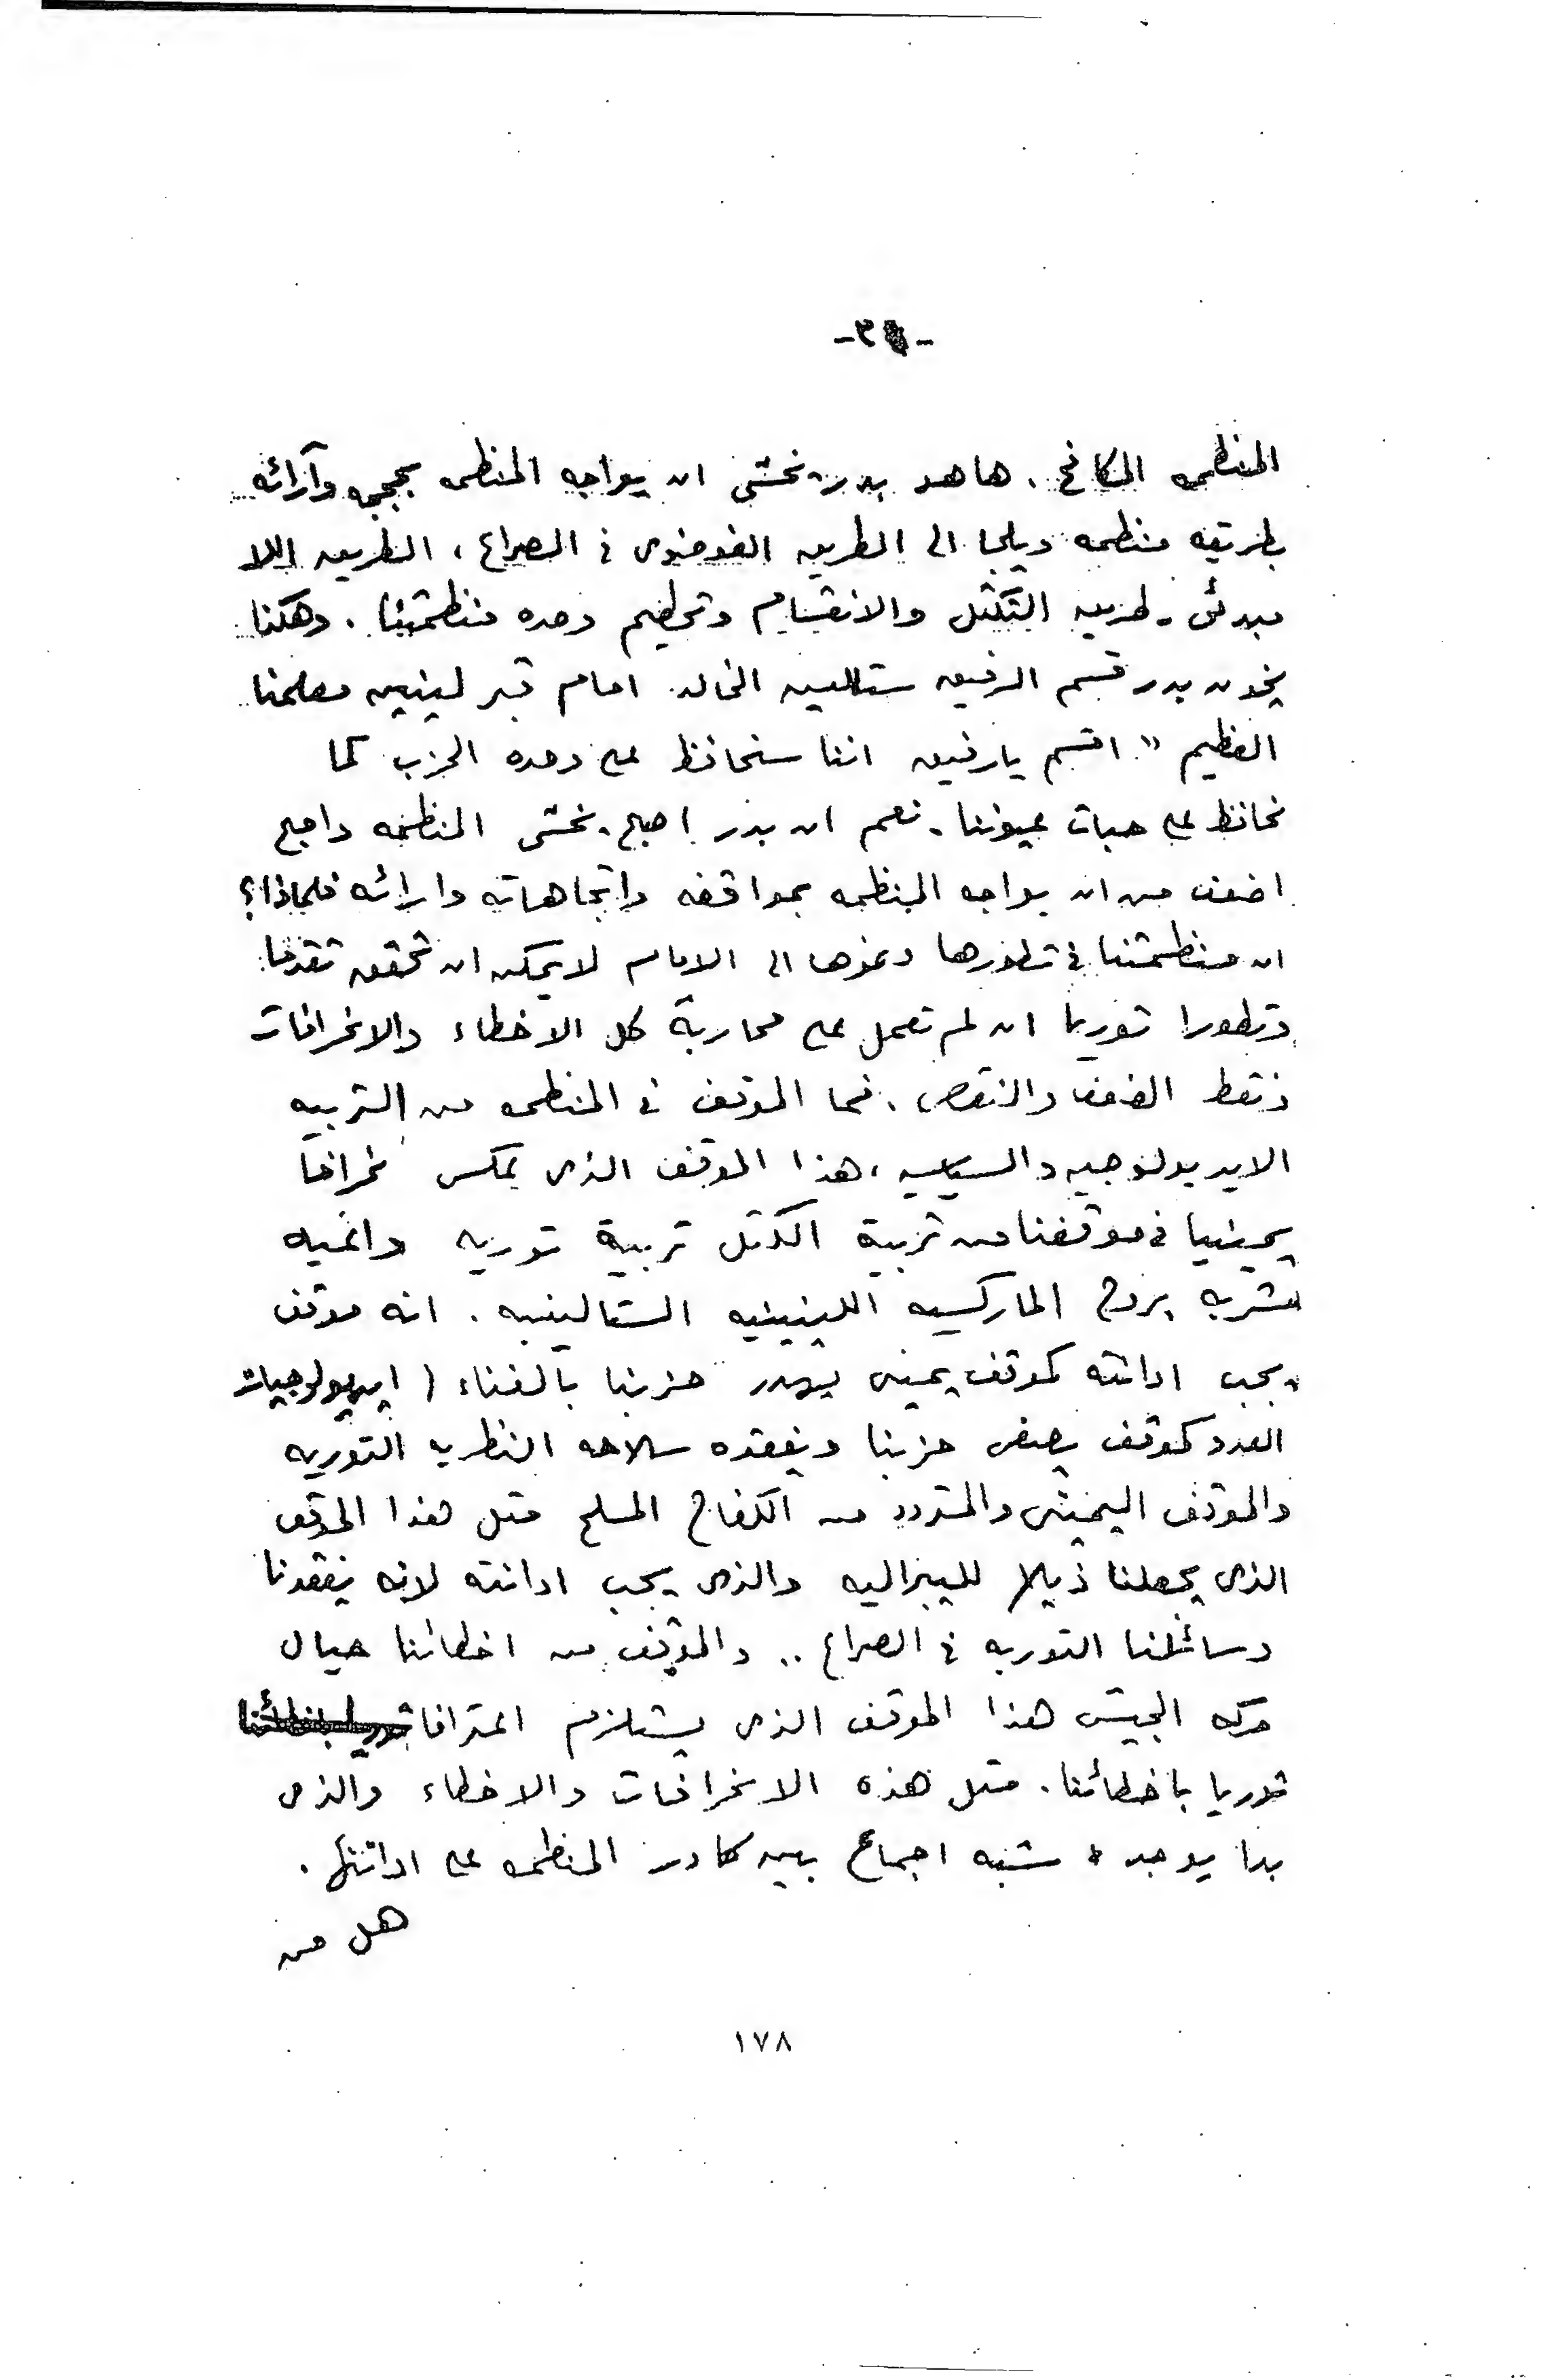 -٣-
المنظمه المكافح . ها هو بدر يخشى ان يواجه المنظمه بحججه وآرائه
بطريقه منظمه ويلجا الى الطريق الفوضوى فى الصراع ، الطريق اللا
مبدئى - طريق التكتل والانقسام وتحطيم وحده منظمتنا . وهكذا
يخون بدر قسم الرفيق ستالين الخالد امام قبر لينين معلمنا
العظيم " اقسم يا رفيق اننا سنحافظ على وحده الحزب كما
نحافظ على حبات عيوننا . نعم ان بدر اصبح يخشى المنظمه واصبح
اضعف من ان يواجه المنظمه بمواقفه واتجاهاته وارائه فلماذا؟
ان منظمتنا فى تطورها ونموها الى الامام لا يمكن ان تحقق تقدما
وتطورا ثوريا ان لم تعمل على محاربة كل الاخطاء والانحرافات
ونقط الضعف والنقص . فما الموقف فى المنظمه من التربيه
الايديولوجيه والسياسيه ، هذا الموقف الذى يعكس انحرافا
يمينيا فى موقفنا من تربية الكتل تربية ثوريه واعيه
مشربه بروح الماركسيه اللينينيه الستالينيه . انه موقف
يجب ادانته كموقف يمينى يهدد حزبنا بالفناء ( ايديولوجيات
العدو كموقف يصفى حزبنا ويفقده سلاحه النظريه الثوريه
والموقف اليمينى والمتردد من الكفاح المسلح مثل هذا الموقف
الذى يجعلنا ذيلا لليبراليه والذى يجب ادانته لانه يفقدنا
وسائلنا الثوريه فى الصراع .. والموقف من اخطائنا حيال
حركه الجيش هذا الموقف الذى يستلزم اعترافا
ثوريا باخطائنا . مثل هذه الانحرافات والاخطاء والذى
بدا يوجد شبه اجماع بين كادر المنظمه على ادانتها .
هل من
١٧٨